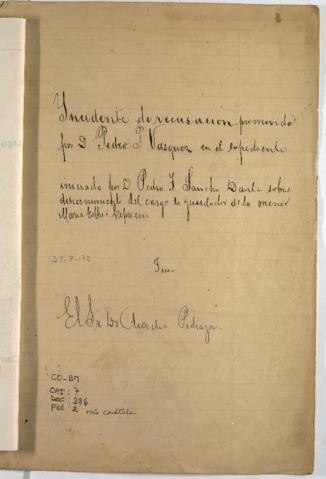 Incidente de recusación promovido
por D. Pedro P. Vasquez en el expediente
iniciado por D. Pedro F. Sancho Dávila sobre
discernimiento del cargo de guardador de la menor
Maria Esther
Juez
El Sr Dr Pedraza.
CO-BM
CAJ: 7
DOC: 386
FOL: 2
más carátula